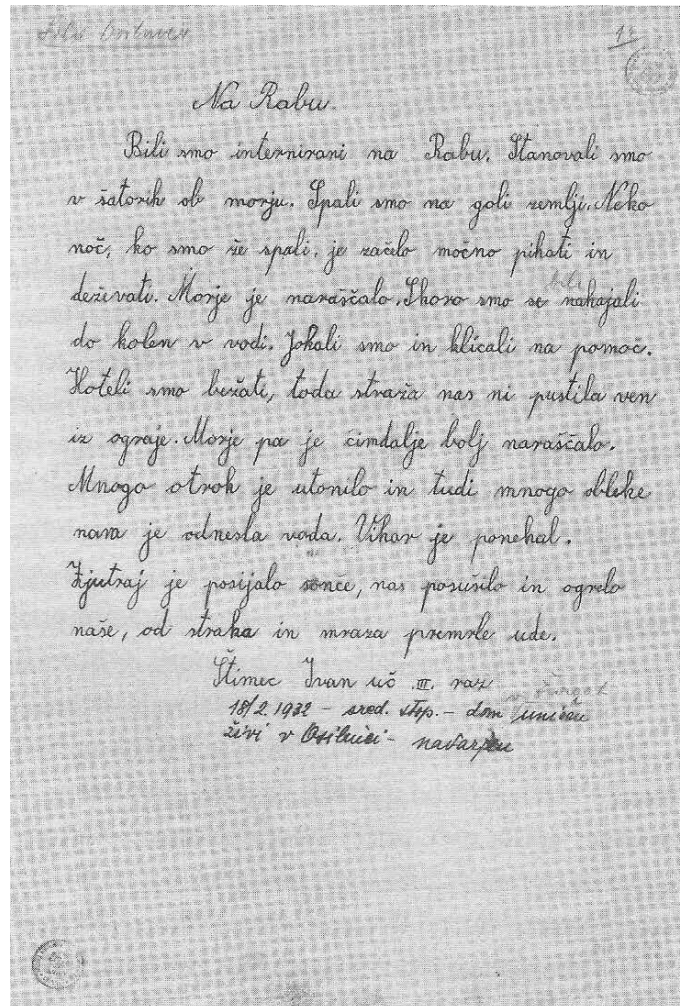 12
Na Rabu.
Bili smo internirani na Rabu. Stanovali smo
v šatorih ob morju. Spali smo na goli zemlji. Neko
noč, ko smo že spali, je začelo močno pihati in
deževati. Morje je naraščalo. Skoro smo se nahajali
bili
do kolen v vodi. Jokali smo in klicali na pomoč.
Hoteli smo bežati, toda straža nas ni pustila ven
iz ograje. Morje pa je čimdalje bolj naraščalo.
Mnogo otrok je utonilo in tudi mnogo obleke
nam je odnesla voda. Vihar je ponehal.
Zjutraj je posijalo sonce, nas posušilo in ogrelo
naše, od straha in mraza premrle ude.
Štimec Ivan uč. III. raz
18/2. 1932 – sred. stop. – dom uničen
živi v Osilnici –